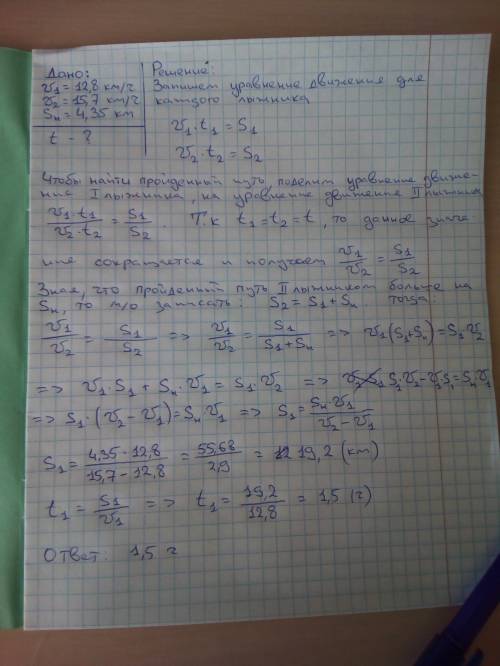 Дано:
v1 = 12,8 км/ч
v2 = 15,7 км/ч
Sн = 4,35 км
t - ?
Решение:
Запишем уравнение движения для
каждого лыжника
v1 · t1 = S1
v2 · t2 = S2
Чтобы найти пройденный путь, поделим уравнение движе-
ния I лыжника, на уравнение движение II лыжника
v1·t1/v2·t2 = S1/S2 . Т.к t1 = t2 = t, то данное значе
ние сокращается и получаем v1/v2 = S1/S2
Зная, что пройденный путь II лыжником больше на
Sн, то м/о записать: S2 = S1 + Sн. тогда:
v1/v2 = S1/S2 => v1/v2 = S1/S1+Sн => v1(S1+Sн) = S1 v2
=> v1·S1 + Sн·v1 = S1·v2 => S1·v2 - v1·S1 = Sн v1
=> S1·(v2 - v1) = Sн v1 => S1 = Sн·v1/v2 - v1
S1 = 4,35·12,8/15,7-12,8 = 55,68/2,9 = 19,2 (км)
t1 = S1/v1 => t1 = 19,2/12,8 = 1,5 (ч)
Ответ: 1,5 ч